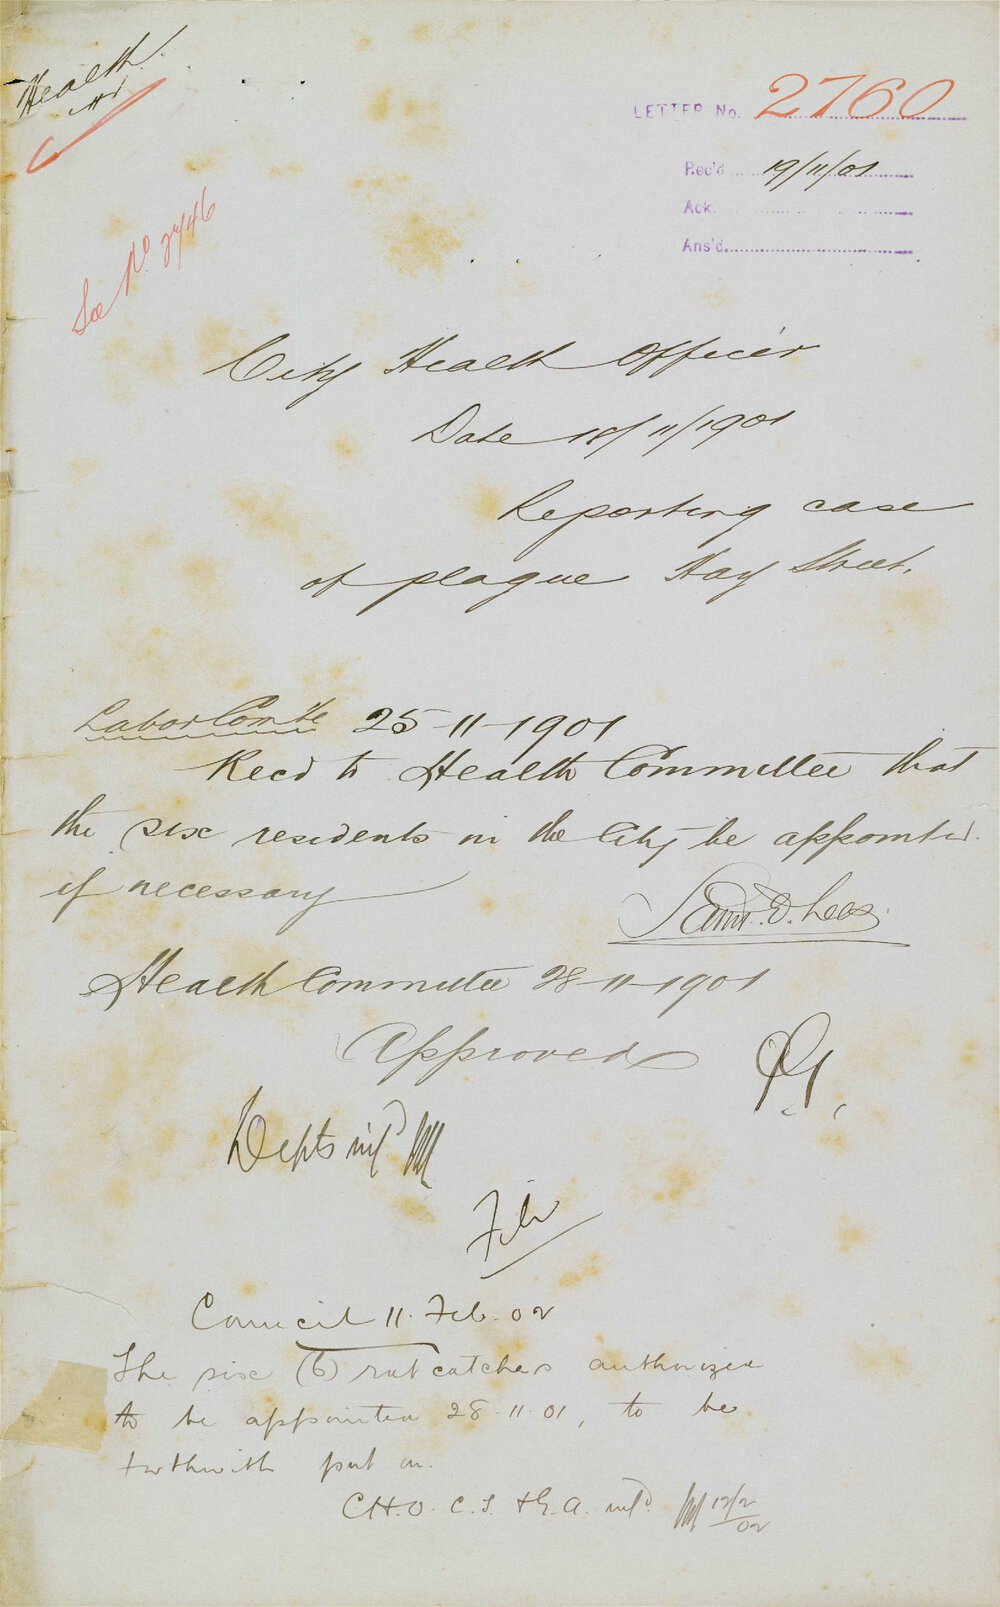 Health.
LETTER No. 2760
Rec'd 19/11/01
Ack.
Ans'd.
See No. 2746
City Health Officer
Date 18/11/1901
Reporting case
of plague Hay Street.
Labor Comte 25-11-1901
Recd to Health Committee that
the six residents in the City be appointed
if necessary
Saml. D. Lees
Health Committee 28-11-1901
Approved
Depts infd
File
Council 11. Feb. 02
The six (6) ratcatchers authorized
to be appointed 28.11.01, to be
forthwith put on.
C.H.O. C.S. & E.A. infd. 12/2/02